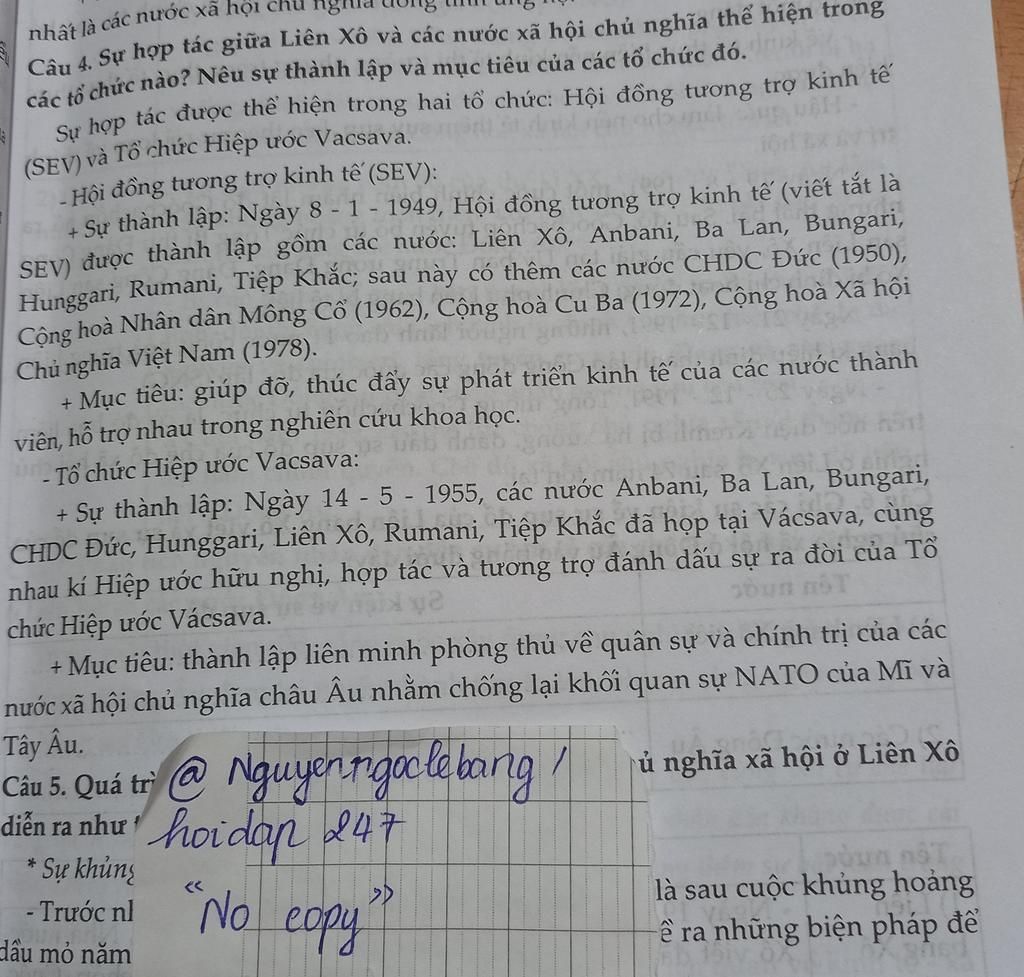 nhất là các nước xã hội chủ nghĩa
Câu 4. Sự hợp tác giữa Liên Xô và các nước xã hội chủ nghĩa thể hiện trong
các tổ chức nào? Nêu sự thành lập và mục tiêu của các tổ chức đó.
Sự hợp tác được thể hiện trong hai tổ chức: Hội đồng tương trợ kinh tế
(SEV) và Tổ chức Hiệp ước Vacsava.
- Hội đồng tương trợ kinh tế (SEV):
+ Sự thành lập: Ngày 8 - 1 - 1949, Hội đồng tương trợ kinh tế (viết tắt là
SEV) được thành lập gồm các nước: Liên Xô, Anbani, Ba Lan, Bungari,
Hunggari, Rumani, Tiệp Khắc; sau này có thêm các nước CHDC Đức (1950),
Cộng hoà Nhân dân Mông Cổ (1962), Cộng hoà Cu Ba (1972), Cộng hoà Xã hội
Chủ nghĩa Việt Nam (1978).
+ Mục tiêu: giúp đỡ, thúc đẩy sự phát triển kinh tế của các nước thành
viên, hỗ trợ nhau trong nghiên cứu khoa học.
- Tổ chức Hiệp ước Vacsava:
+ Sự thành lập: Ngày 14 - 5 - 1955, các nước Anbani, Ba Lan, Bungari,
CHDC Đức, Hunggari, Liên Xô, Rumani, Tiệp Khắc đã họp tại Vácsava, cùng
nhau kí Hiệp ước hữu nghị, hợp tác và tương trợ đánh dấu sự ra đời của Tổ
chức Hiệp ước Vácsava.
+ Mục tiêu: thành lập liên minh phòng thủ về quân sự và chính trị của các
nước xã hội chủ nghĩa châu Âu nhằm chống lại khối quan sự NATO của Mĩ và
Tây Âu.
Câu 5. Quá trì ủ nghĩa xã hội ở Liên Xô
diễn ra như
* Sự khủng
- Trước nl là sau cuộc khủng hoảng
dầu mỏ năm ề ra những biện pháp để
@ Nguyenngoclebang /
hoidap 247
"No copy"